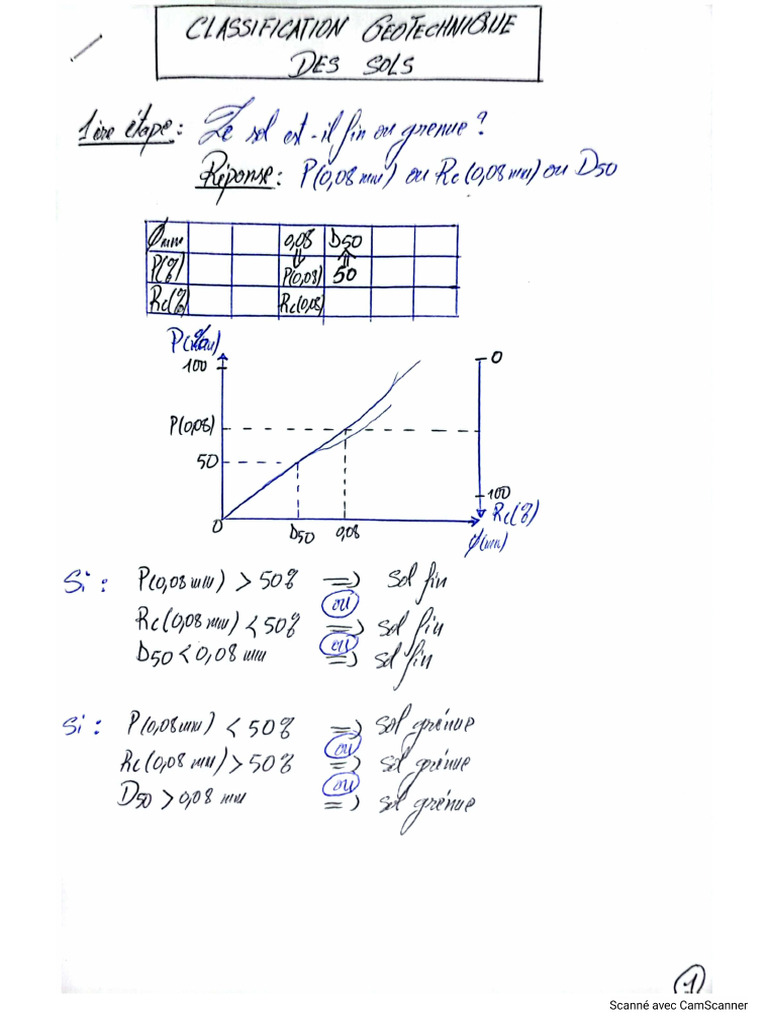 CLASSIFICATION GEOTECHNIQUE
DES SOLS
1ère étape : Le sol est-il fin ou grenue ?
Réponse : P(0,08 mm) ou Rc(0,08 mm) ou D50
Ømm 0,08 D50
P(%) P(0,08) 50
Rc(%) Rc(0,08)
100 0
P(0,08)
50
100
0 D50 0,08 Rc(%)
Ø(mm)
Si : P(0,08 mm) > 50% => sol fin
ou
Rc(0,08 mm) < 50% => sol fin
ou
D50 < 0,08 mm => sol fin
Si : P(0,08 mm) < 50% => sol grénue
ou
Rc(0,08 mm) > 50% => sol grénue
ou
D50 > 0,08 mm => sol grénue
1
Scanné avec CamScanner